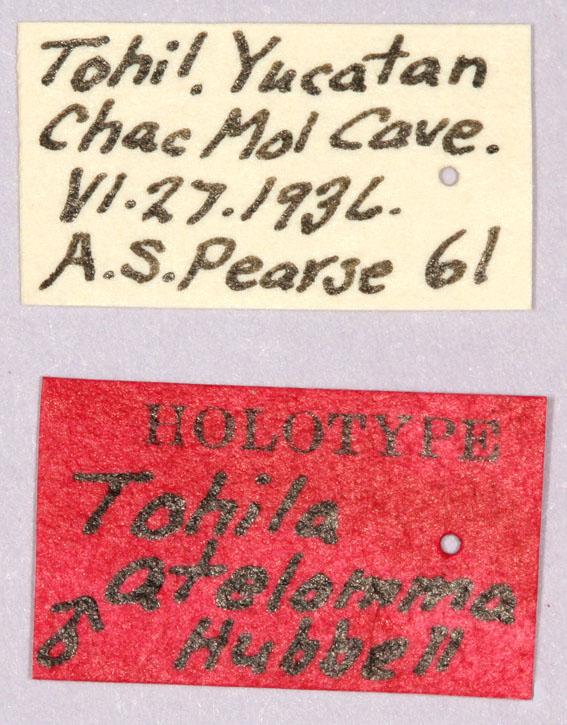 Tohil. Yucatan
Chac Mol Cave.
VI.27.1936.
A.S.Pearse 61
HOLOTYPE
Tohila
atelomma
♂ Hubbell